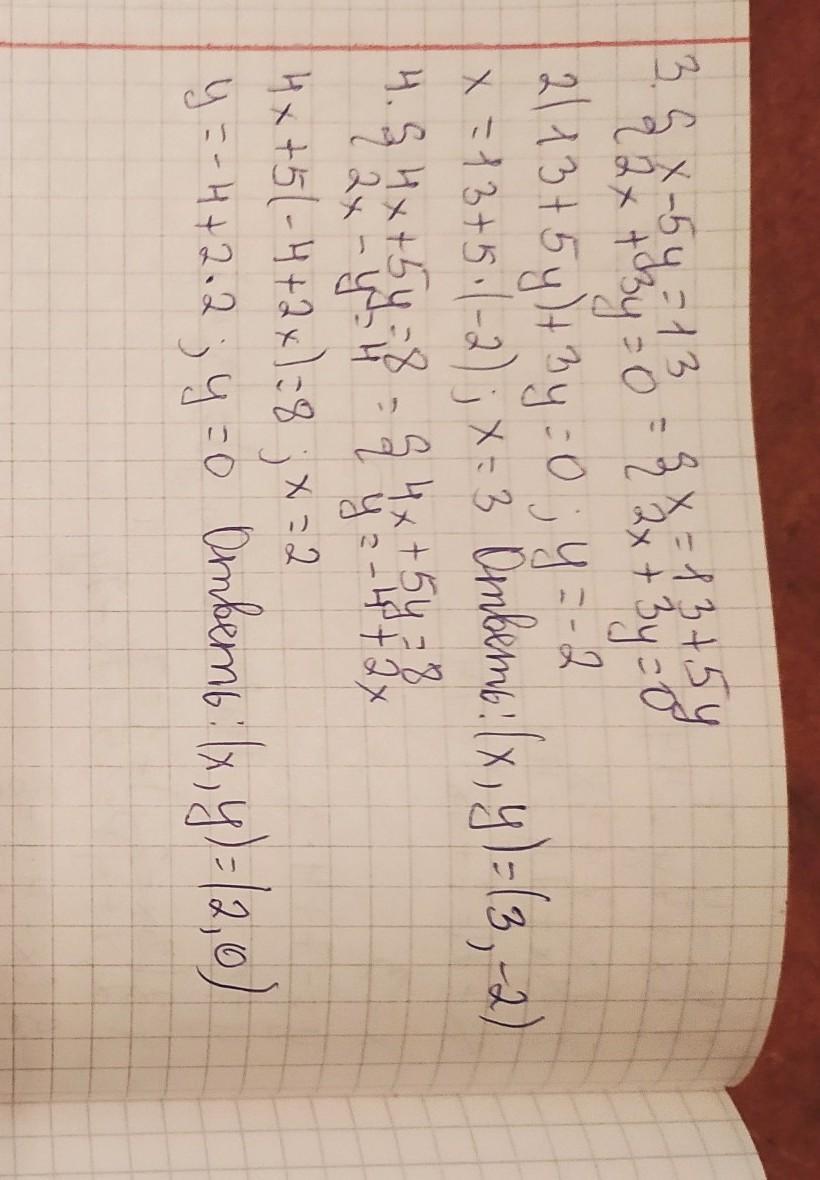 3. { x - 5y = 13 = { x = 13 + 5y
{ 2x + 3y = 0 { 2x + 3y = 0
2(13 + 5y) + 3y = 0 ; y = -2
x = 13 + 5·(-2) ; x = 3 Ответ: (x, y) = (3, -2)
4. { 4x + 5y = 8 = { 4x + 5y = 8
{ 2x - y = 4 { y = -4 + 2x
4x + 5(-4 + 2x) = 8 ; x = 2
y = -4 + 2·2 ; y = 0 Ответ: (x, y) = (2, 0)